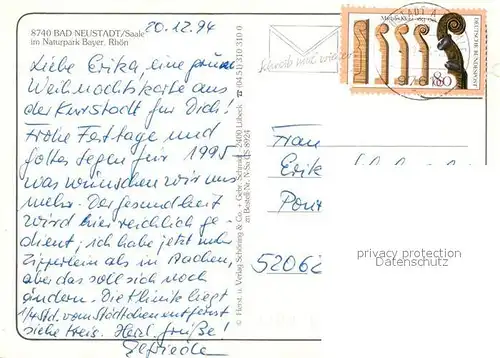 8740 BAD NEUSTADT/Saale
im Naturpark Bayer. Rhön
20.12.94
Liebe Erika, eine grüne
Weihnachtskarte aus
der Kurstadt für Dich!
Frohe Festtage und
Gottes Segen für 1995
was wünschen wir uns
mehr. Der Gesundheit
wird hier reichlich ge-
dient, ich habe jetzt mehr
Zipperlein als in Aachen,
aber das soll sich noch
ändern. Die Klinik liegt
1/4 Std. vom Städtchen entfernt
siehe Kreis. Herzl. Grüße!
Elfriede
© Herst. u. Verlag Schöning & Co. + Gebr. Schmidt, 2400 Lübeck ☎ (04 51) 310 310
Bestell-Nr. N-Sa CS 8924
Schreib mal wieder
DEUTSCHE BUNDESPOST
80
97616
Frau
Erik
52062
privacy protection
Datenschutz